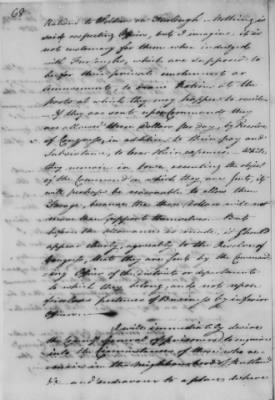 68
Rations to Soldiers on Furlough. Nothing is
said respecting Officers, but I imagine, it is
not customary for them when indulged
with Furloughs, which are supposed to
be for their private emolument or
amusement, to draw Rations at the
posts at which they may happen to reside.
If they are sent upon Commands they
are allowed three Dollars per day, by Resolve
of Congress, in addition to their pay and
Subsistence, to bear their expences. While
they remain in town executing the object
of the Command on which they are sent, it
will perhaps be reasonable to allow them
Forage, because the three Dollars will not
more than support themselves. But
before the allowance is made, it should
appear clearly, agreeably to the Resolve of
Congress, that they are sent by the Command
ing Officer of the districts or departments
to which they belong, and not upon
frivolous pretences of Business by inferior
Officers.
I will immediately desire
the Comy General of prisoners to enquire
into the Circumstances of those who
remain in the neighbourhood of Rutland
&c and endeavour to a place where